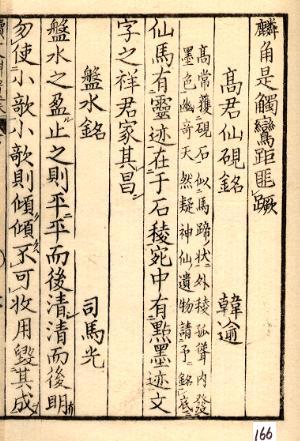 麟角是觸鸞距匪蹶
高君仙硯銘　韓逾
高常獲硯石似馬蹄狀外稜孤聳內發
墨色幽奇天然疑神仙遺物請予銘底
仙馬有靈迹在于石稜宛中有點墨迹文
字之祥君家其昌
盤水銘　司馬光
盤水之盈止之則平平而後清清而後明
勿使小欹小欹則傾傾不可收用毀其成
166